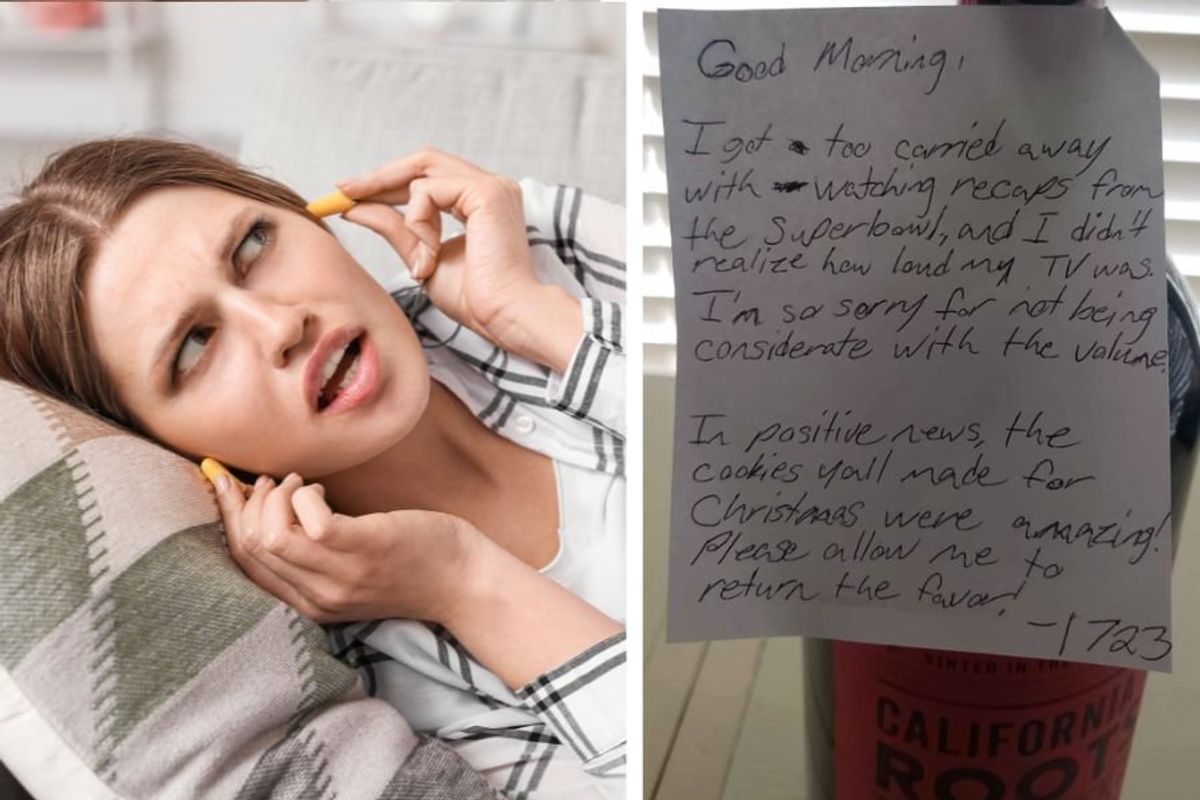 Good Morning,
I got too carried away
with watching recaps from
the Superbowl, and I didn't
realize how loud my TV was.
I'm so sorry for not being
considerate with the volume.
In positive news, the
cookies yall made for
Christmas were amazing!
Please allow me to
return the favor!
-1723
VINTED IN THE
CALIFORNIA
ROOT